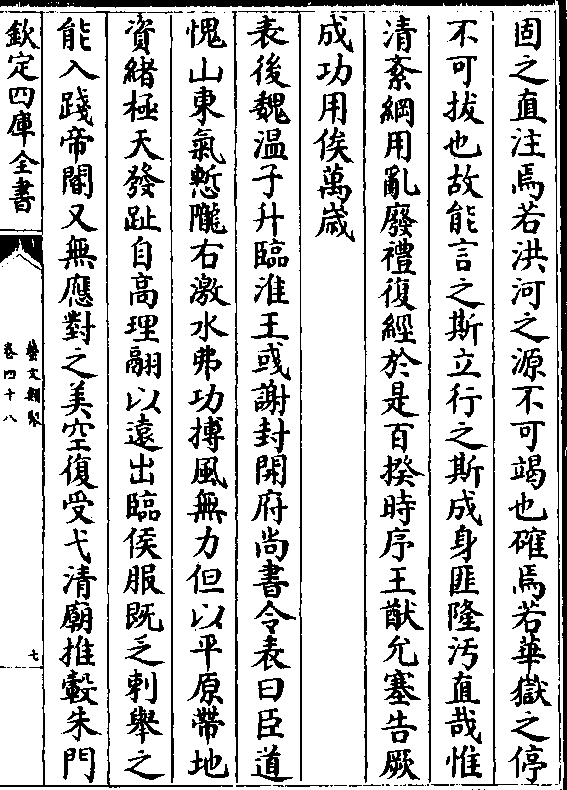 固之直注焉若洪河之源不可竭也確焉若華嶽之停
不可拔也故能言之斯立行之斯成身匪隆汚直哉惟
清紊綱用亂廢禮復經於是百揆時序王猷允塞告厥
成功用俟萬歳
表後魏温子升臨淮王彧謝封開府尚書令表曰臣道
愧山東氣慙隴右激水弗功摶風無力但以平原帶地
資緒極天發趾自高理翮以遠出臨侯服既乏刺舉之
能入踐帝閽又無應對之美空復受弋清廟推轂朱門
欽定四庫全書
藝文類聚
卷四十八
七